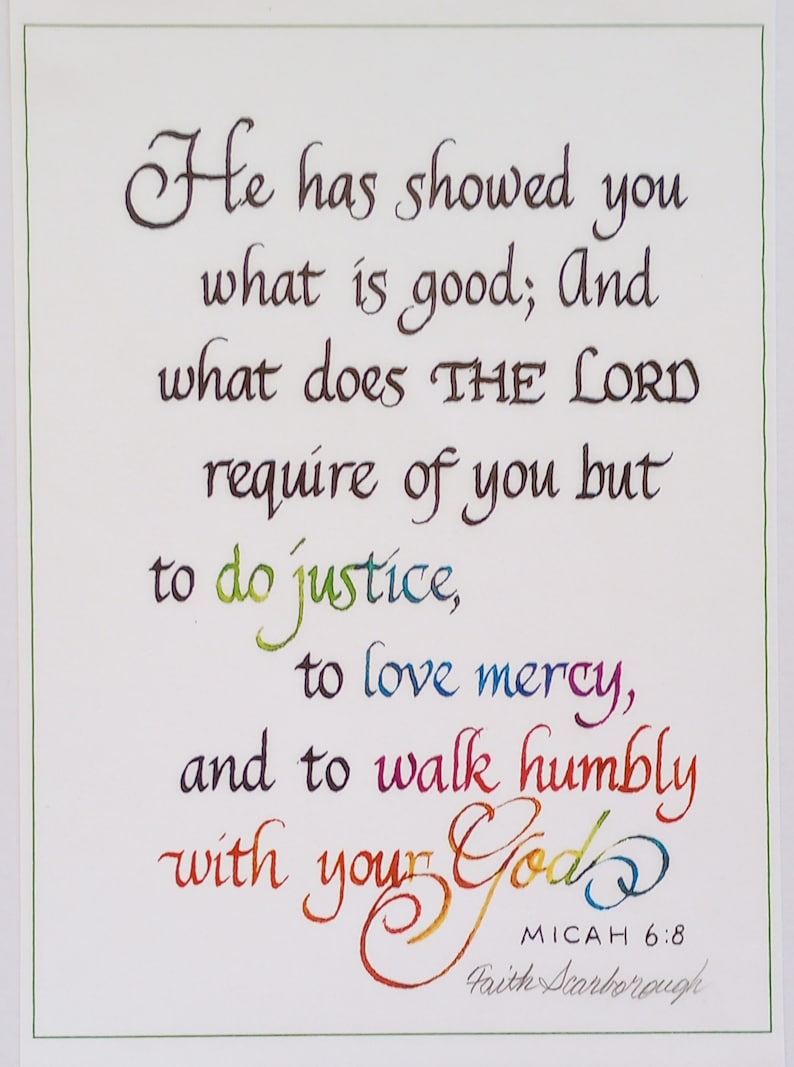 He has showed you
what is good; And
what does THE LORD
require of you but
to do justice,
to love mercy,
and to walk humbly
with your God
MICAH 6:8
Faith Scarborough